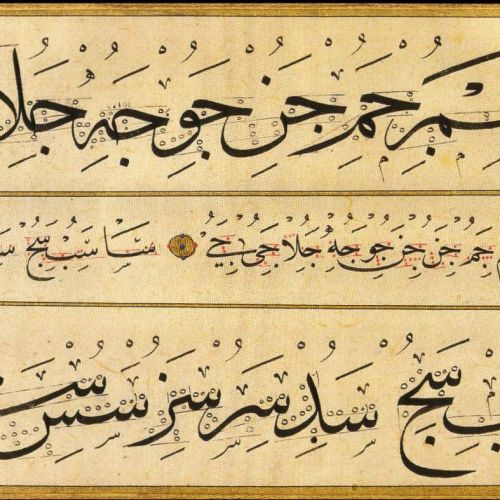 جم جن جو جه جلا
جم جن جن جو جه جلا جى جى سا سب سج
سج سد سر سر سس